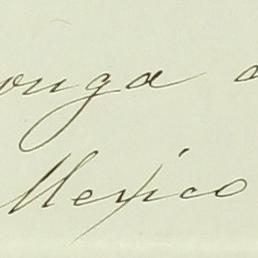 ouga a
Mexico